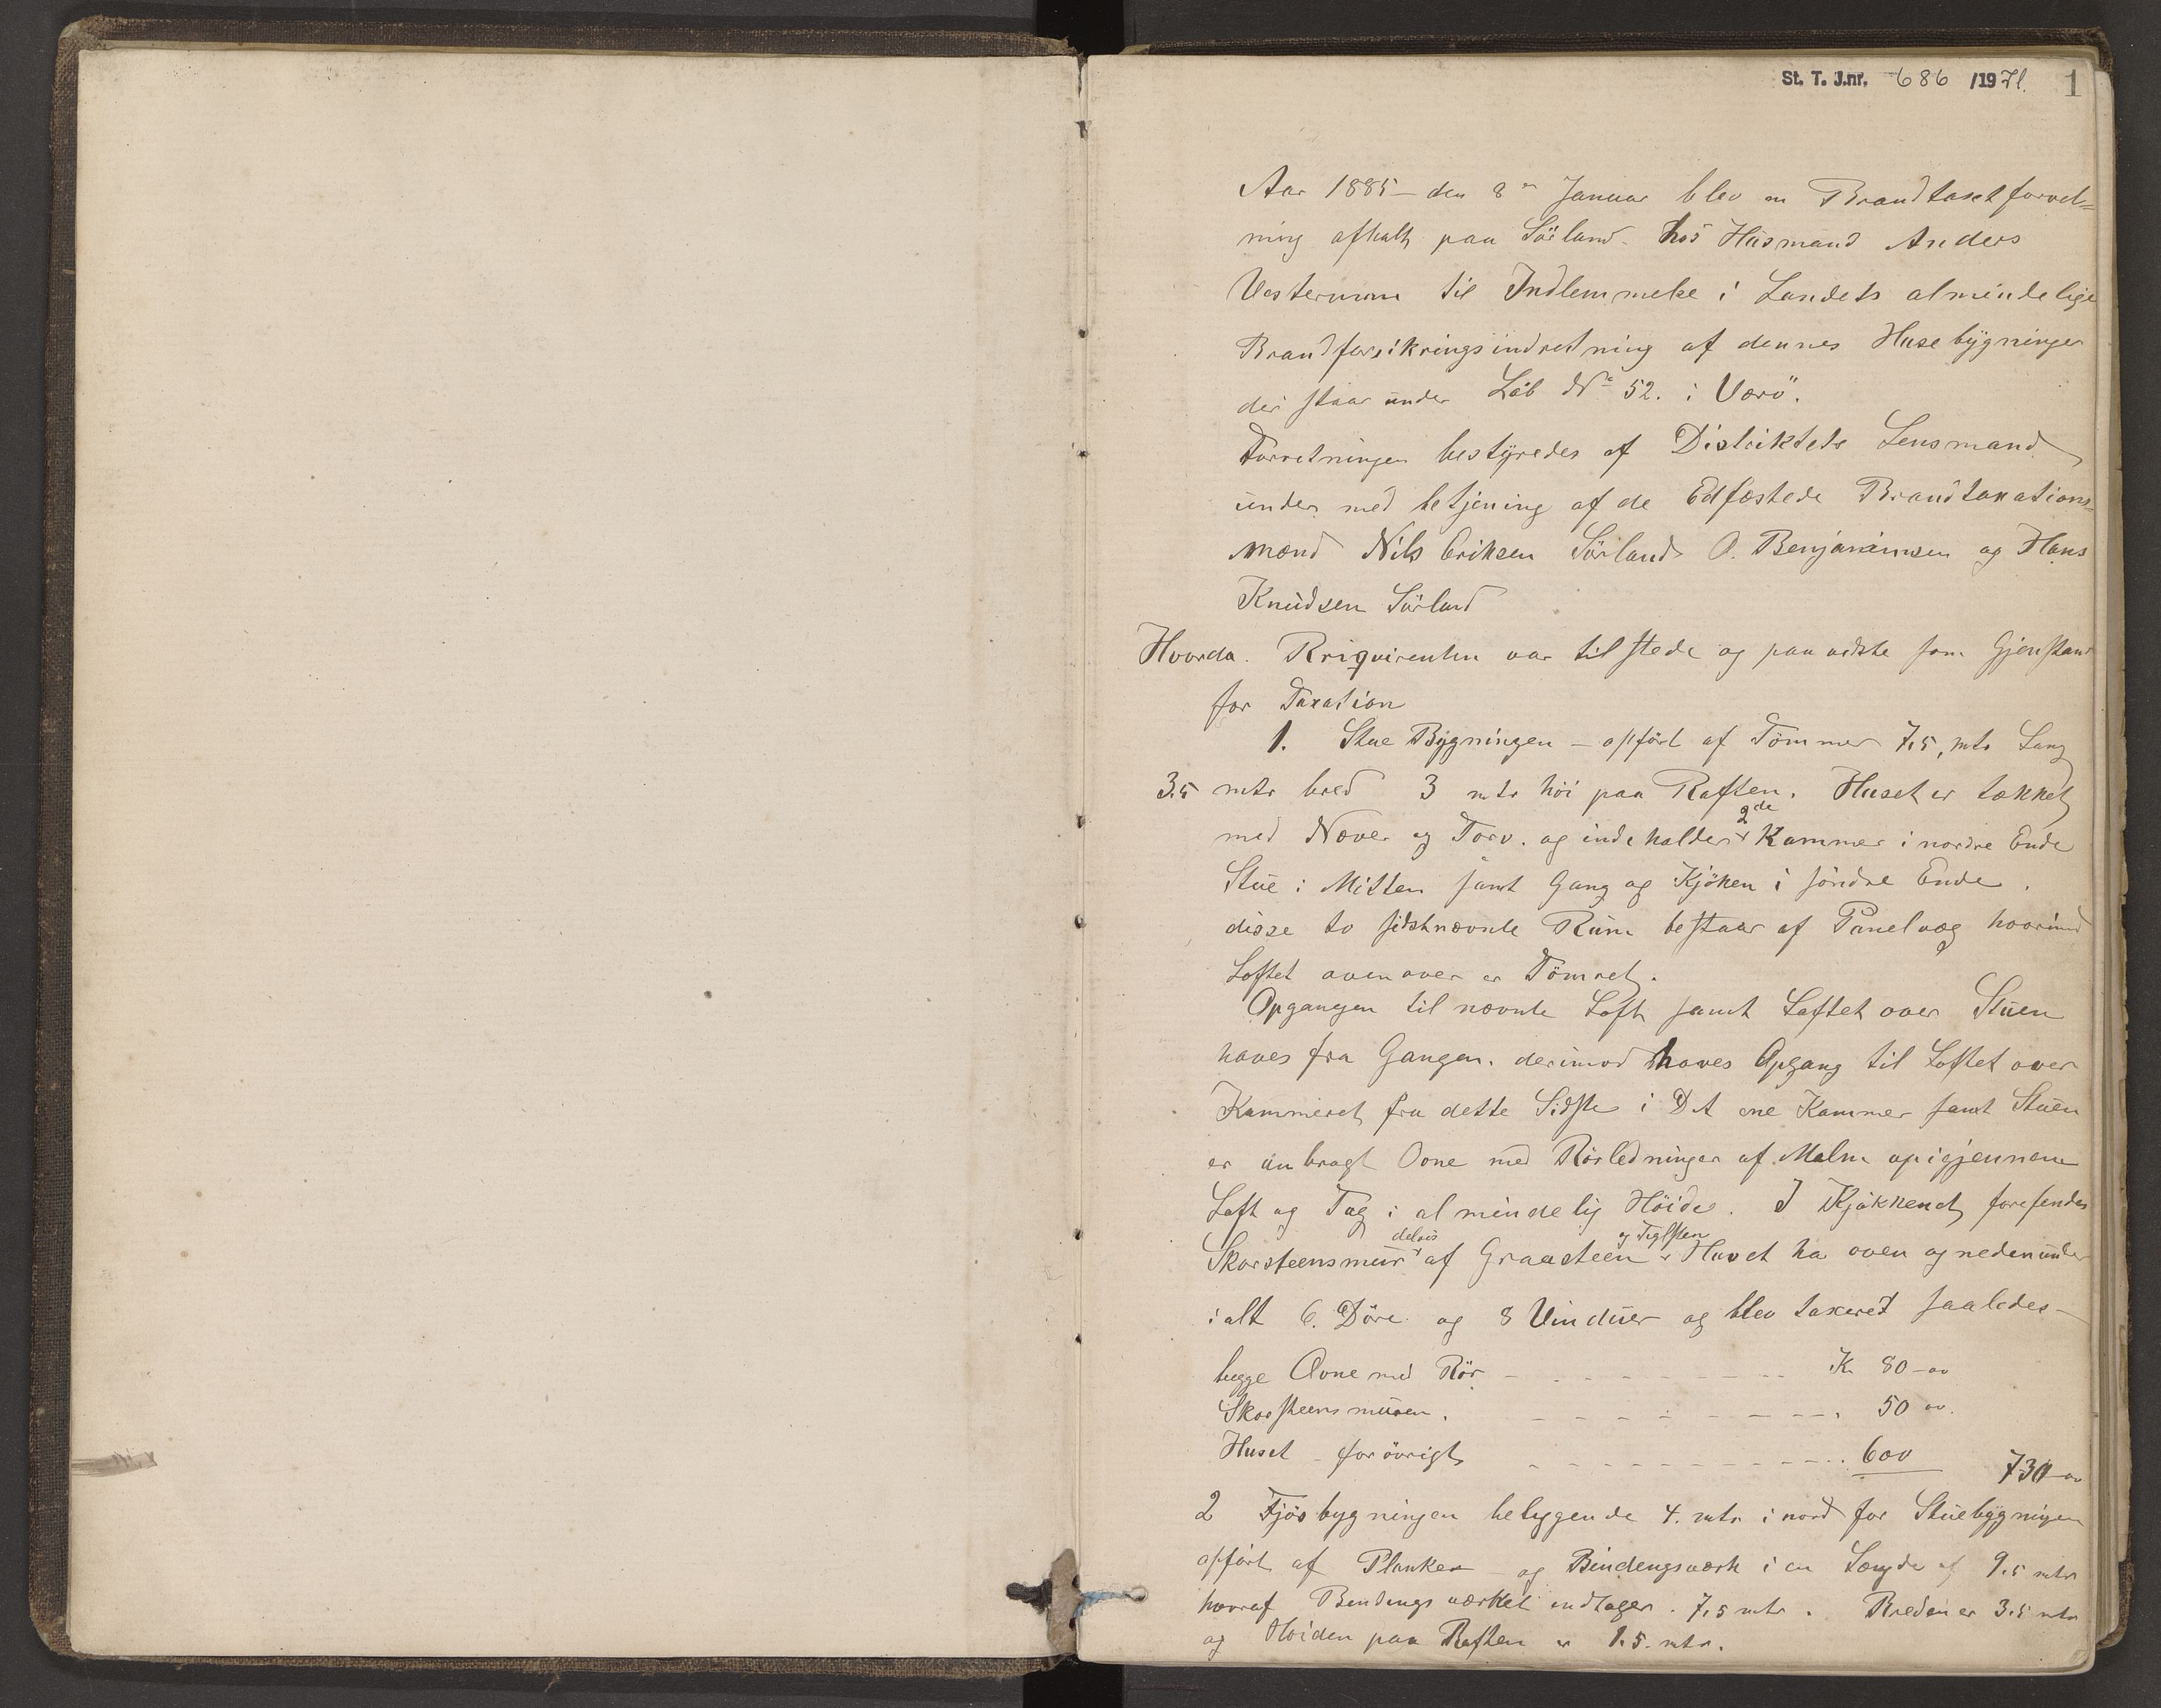 St. T. J.nr. 686 /1971. 1
Aar 1885 - den 8n Januar blev en Brandtaxtforret=
ning afholt paa Sörland. hos Husmand Anders
Vestermann til Indlemmelse i Landets almindelige
Brandforsikringsindretning af dennes Husebygninger
der staar under Löb No 52. i Værö.
Forretningen bestyredes af Distriktets Lensmand
under med betjening af de Edfæstede Brandtaxations=
mænd Nils Eriksen Sörland O. Benjaminsen og Hans
Knudsen Sörland
Hvorda. Rriqvirenten var tilstede og paaviste som Gjenstand
for Taxation
1. Stue Bygningen - opfört af Tömmer 7,5, mtr Lang
3.5 mtr bred 3 mtr höi paa Raften. Huset er tækket
med Næver og Torv. og indeholder 2de Kammer i nordre Ende
Stue i Mitten samt Gang og Kjöken i söndre Ende.
disse to sidstnævnte Rum bestaar af Panelvæg hvorimod
Loftet ovenover er Tömret.
Opgangen til nævnte Loft samt Loftet over Stuen
haves fra Gangen. derimod haves Opgang til Loftet over
Kammeret fra dette Sidste i Det ene Kammer samt Stuen
er anbragt Ovne med Rörledninger af Malm opigjennem
Loft og Tag i almindelig Höide. I Kjøkkenet forefindes
Skorsteensmur delvis af Graasteen og Teglsten Huset ha oven og nedenunder
ialt 6. Döre og 8 Vinduer og blev taxeret saaledes -
begge Ovne med Rör - - - - - - - - - - K 80 - oo
Skorsteensmuren. - - - - - - - - - 50 oo.
Huset forövrigt - - - - - - - - - - - 600 730 - oo
2 Fjösbygningen beliggende 4. mtr i nord for Stuebygningen
opfört af Planker og Bindingsværk i en Længde af 9.5 mtr
hvoraf Bindingsværket indtager. 7,5 mtr. Breden er 3.5 mtr
og Höiden paa Raften er 1.5. mtr.